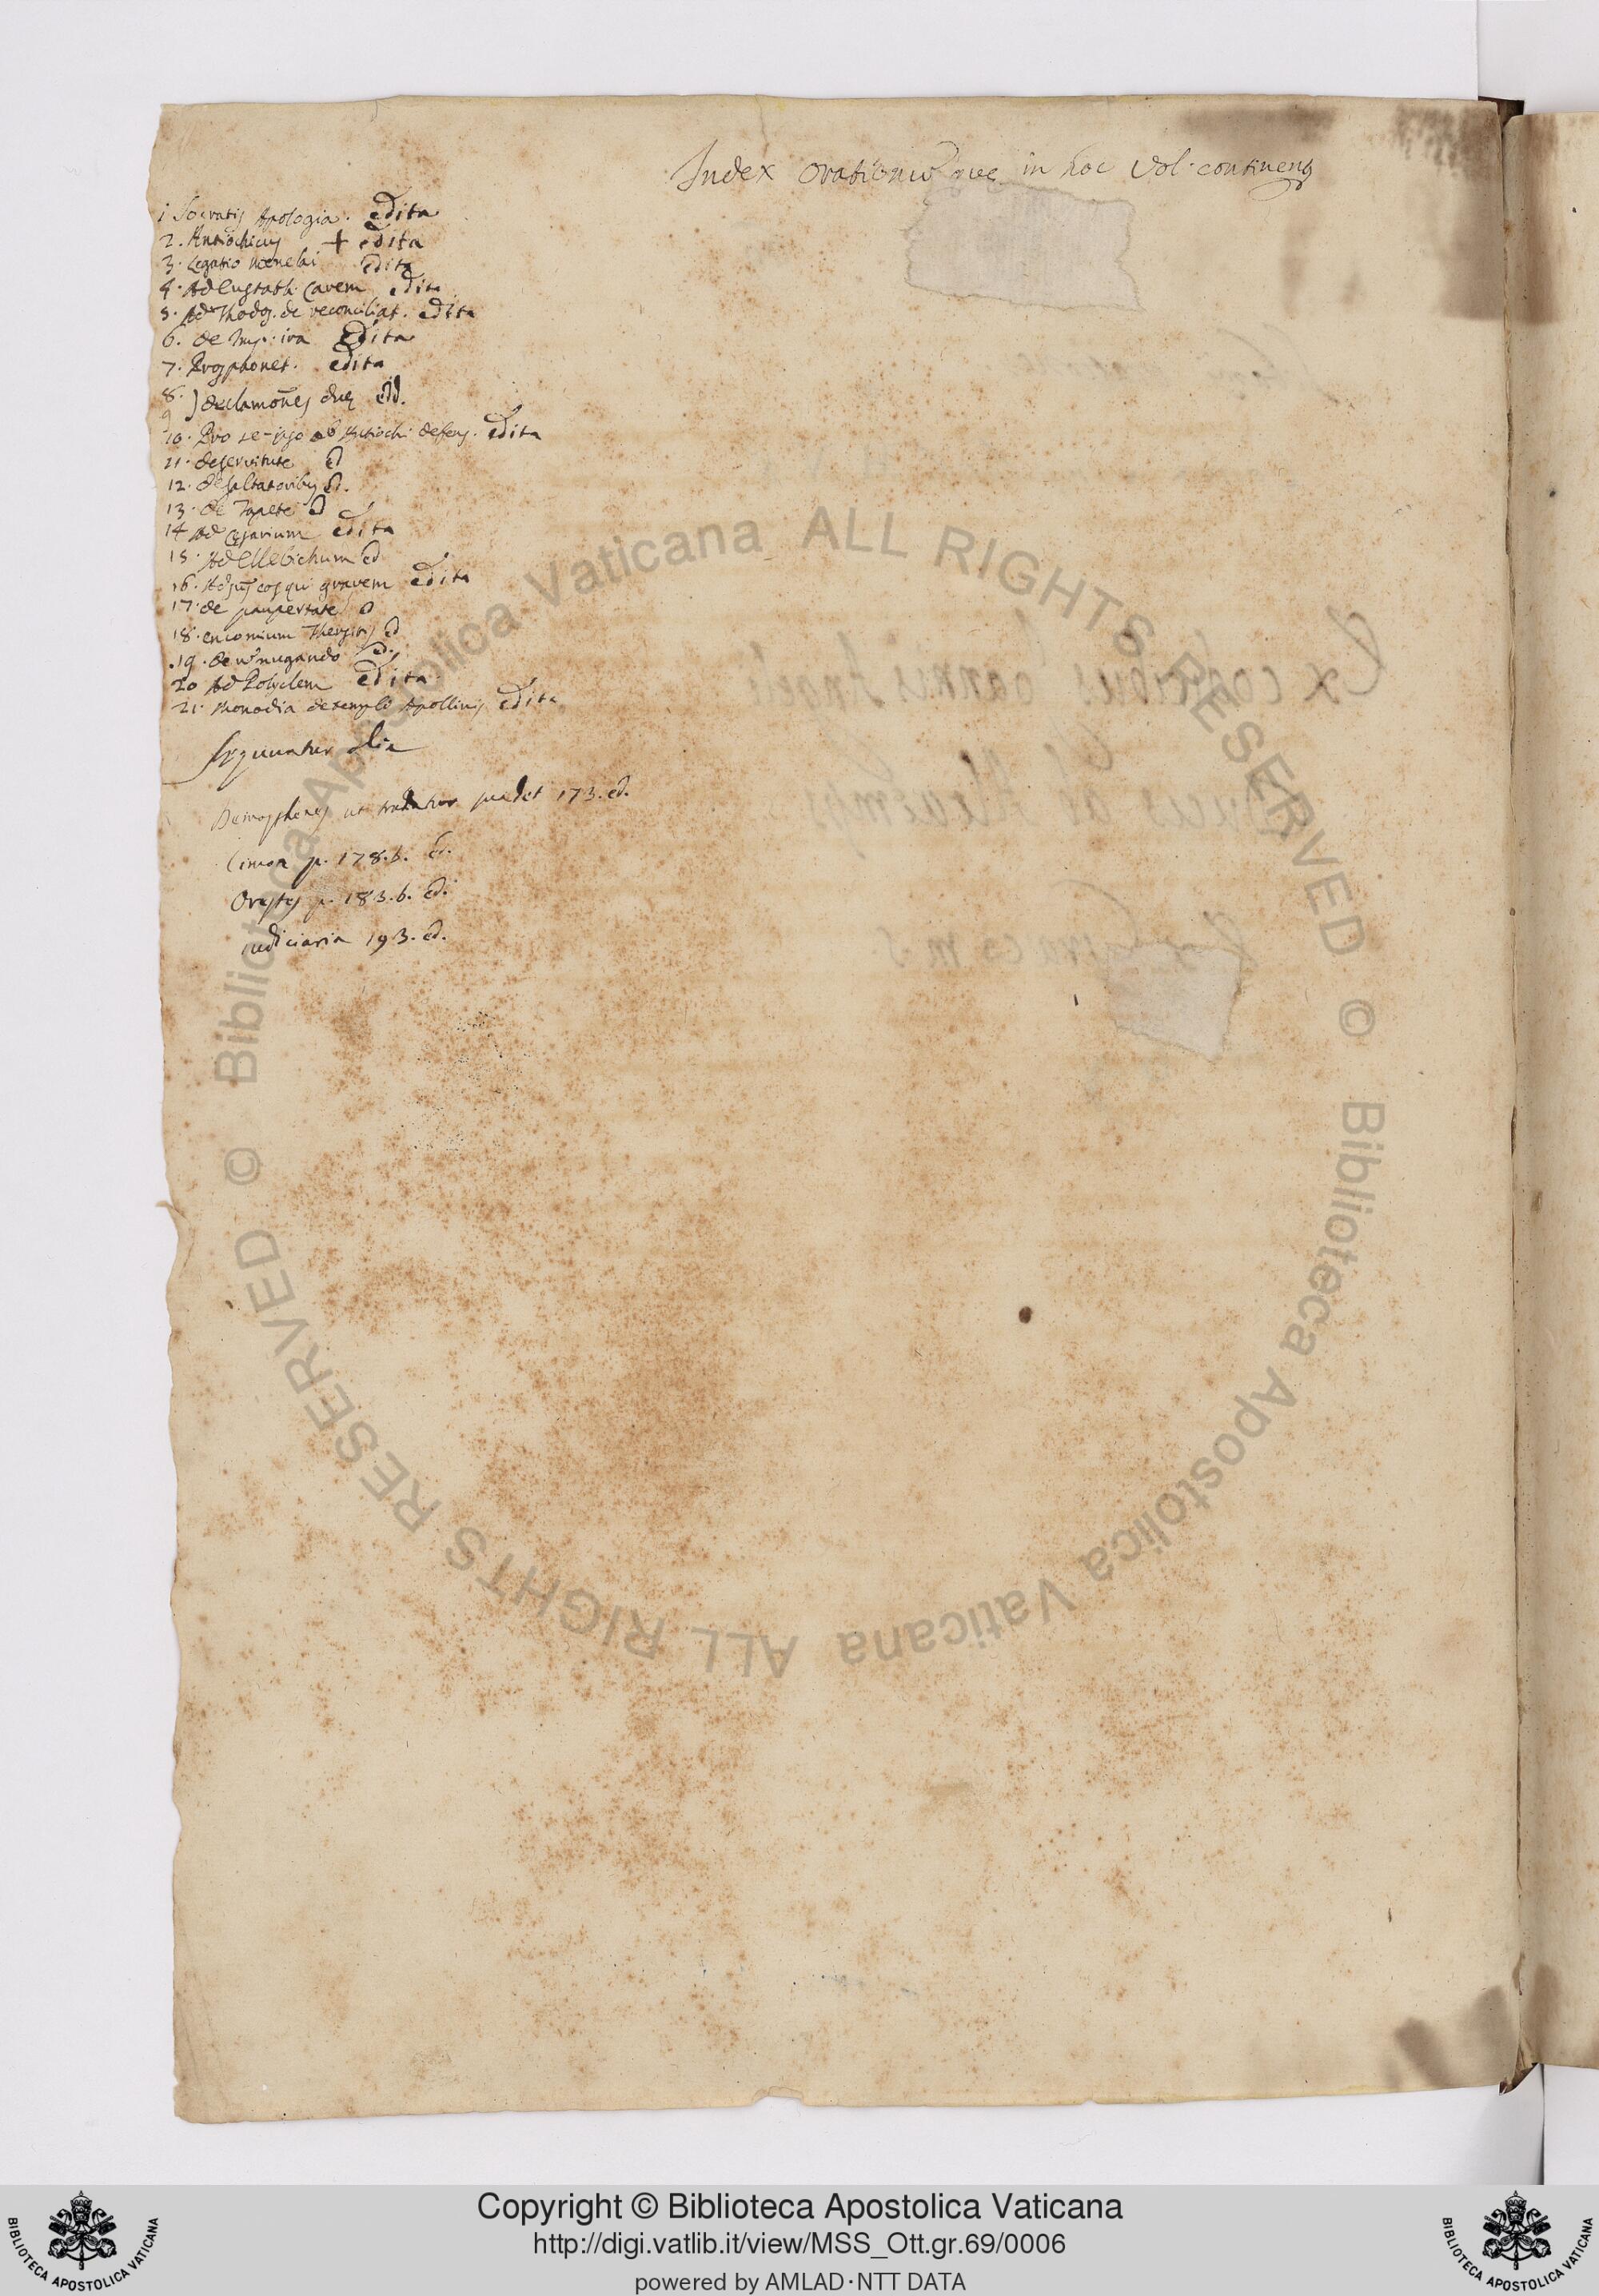 Index orationũ quę in hoc vol. continent
1 Socratis Apologia. edita
2. Antiochicus + edita
3. Legatio Menelai edita
4. Ad Eustath. Carem edita
5. Ad Thodos. de reconciliat. edita
6. de Imp. ira Edita
7. Prosphonet. edita
8.
9 } declamoñes duę ed.
10. Pro se-ipso ob Antiochi defens. edita
11. de servitute ed
12. de saltatoribus ed.
13. de Tapete ed
14 Ad Cęsarium edita
15. Ad Ellebichum ed
16. Adsus eos qui gravem edita
17. de paupertate ed
18. encomium Thersitis ed
19. de nugando ed.
20 Ad Polyclem edita
21. Monodia de templi Apollinis edita
Sequuntur alia
Demosthenes ut tradatur petet 173. ed.
Cimon p. 178.b. ed.
Orestes p. 183.b. ed.
iudiciaria 193. ed.
© Biblioteca Apostolica Vaticana ALL RIGHTS RESERVED
© Biblioteca Apostolica Vaticana ALL RIGHTS RESERVED
Copyright © Biblioteca Apostolica Vaticana
http://digi.vatlib.it/view/MSS_Ott.gr.69/0006
powered by AMLAD·NTT DATA
BIBLIOTECA APOSTOLICA VATICANA
BIBLIOTECA APOSTOLICA VATICANA